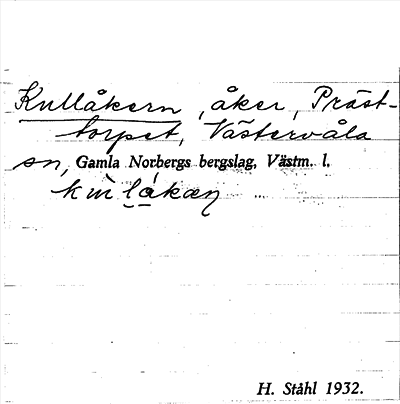 Kullåkern, åker, Präst-
torpet, Västervåla
sn, Gamla Norbergs bergslag, Västm. l.
H. Ståhl 1932.